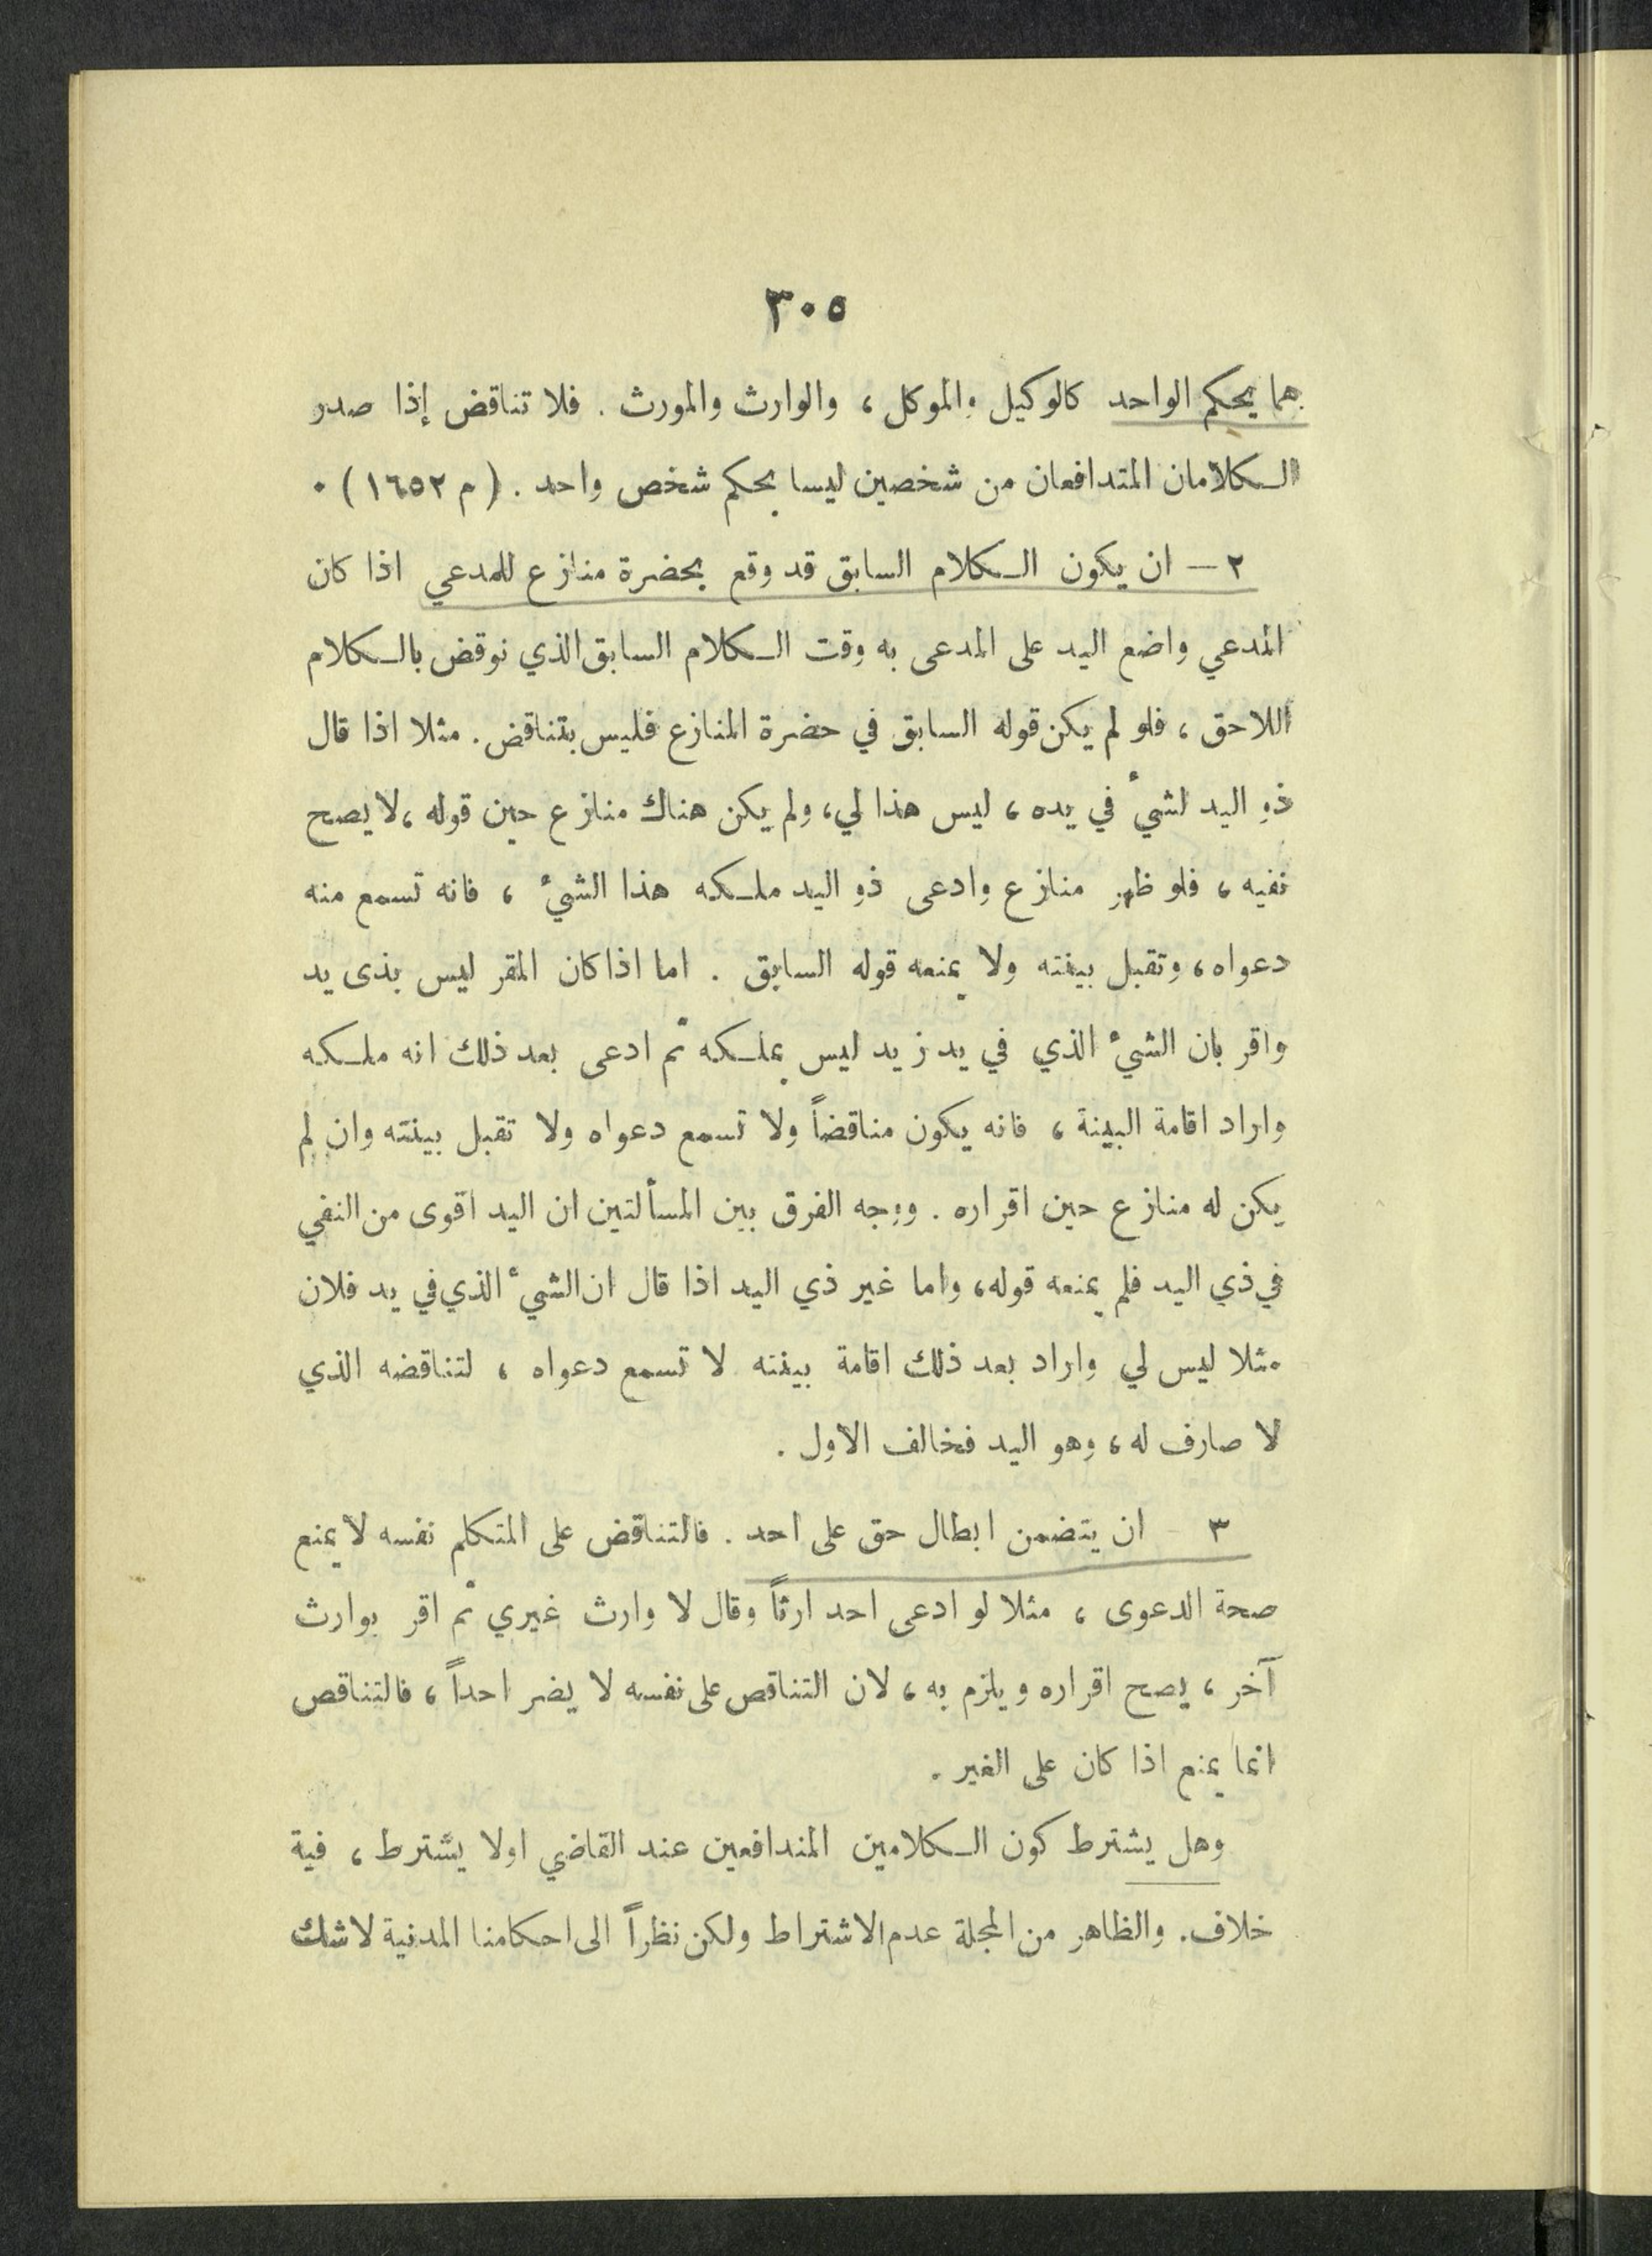 ٣٠٥
هما بحكم الواحد كالوكيل والموكل ، والوارث والمورث . فلا تناقض إذا صدر
الكلامان المتدافعان من شخصين ليسا بحكم شخص واحد . ( م ١٦٥٢ ) .
٢ – ان يكون الكلام السابق قد وقع بحضرة منازع للمدعي اذا كان
المدعي واضع اليد على المدعى به وقت الكلام السابق الذي نوقض بالكلام
اللاحق ، فلو لم يكن قوله السابق في حضرة المنازع فليس بتناقض . مثلا اذا قال
ذو اليد لشيء في يده ، ليس هذا لي ، ولم يكن هناك منازع حين قوله ، لا يصح
نفيه ، فلو ظهر منازع وادعى ذو اليد ملكه هذا الشيء ، فانه تسمع منه
دعواه ، وتقبل بينته ولا يمنعه قوله السابق . اما اذا كان المقر ليس بذى يد
واقر بان الشيء الذي في يد زيد ليس بملكه ثم ادعى بعد ذلك انه ملكه
واراد اقامة البينة ، فانه يكون مناقضاً ولا تسمع دعواه ولا تقبل بينته وان لم
يكن له منازع حين اقراره . ووجه الفرق بين المسألتين ان اليد اقوى من النفي
في ذي اليد فلم يمنعه قوله ، واما غير ذي اليد اذا قال ان الشيء الذي في يد فلان
مثلا ليس لي واراد بعد ذلك اقامة بينته لا تسمع دعواه ، لتناقضه الذي
لا صارف له ، وهو اليد فخالف الاول .
٣ - ان يتضمن ابطال حق على احد . فالتناقض على المتكلم نفسه لا يمنع
صحة الدعوى ، مثلا لو ادعى احد ارثاً وقال لا وارث غيري ثم اقر بوارث
آخر ، يصح اقراره ويلزم به ، لان التناقص على نفسه لا يضر احداً ، فالتناقص
انما يمنع اذا كان على الغير .
وهل يشترط كون الكلامين المتدافعين عند القاضي اولا يشترط ، فية
خلاف . والظاهر من المجلة عدم الاشتراط ولكن نظراً الى احكامنا المدنية لا شك